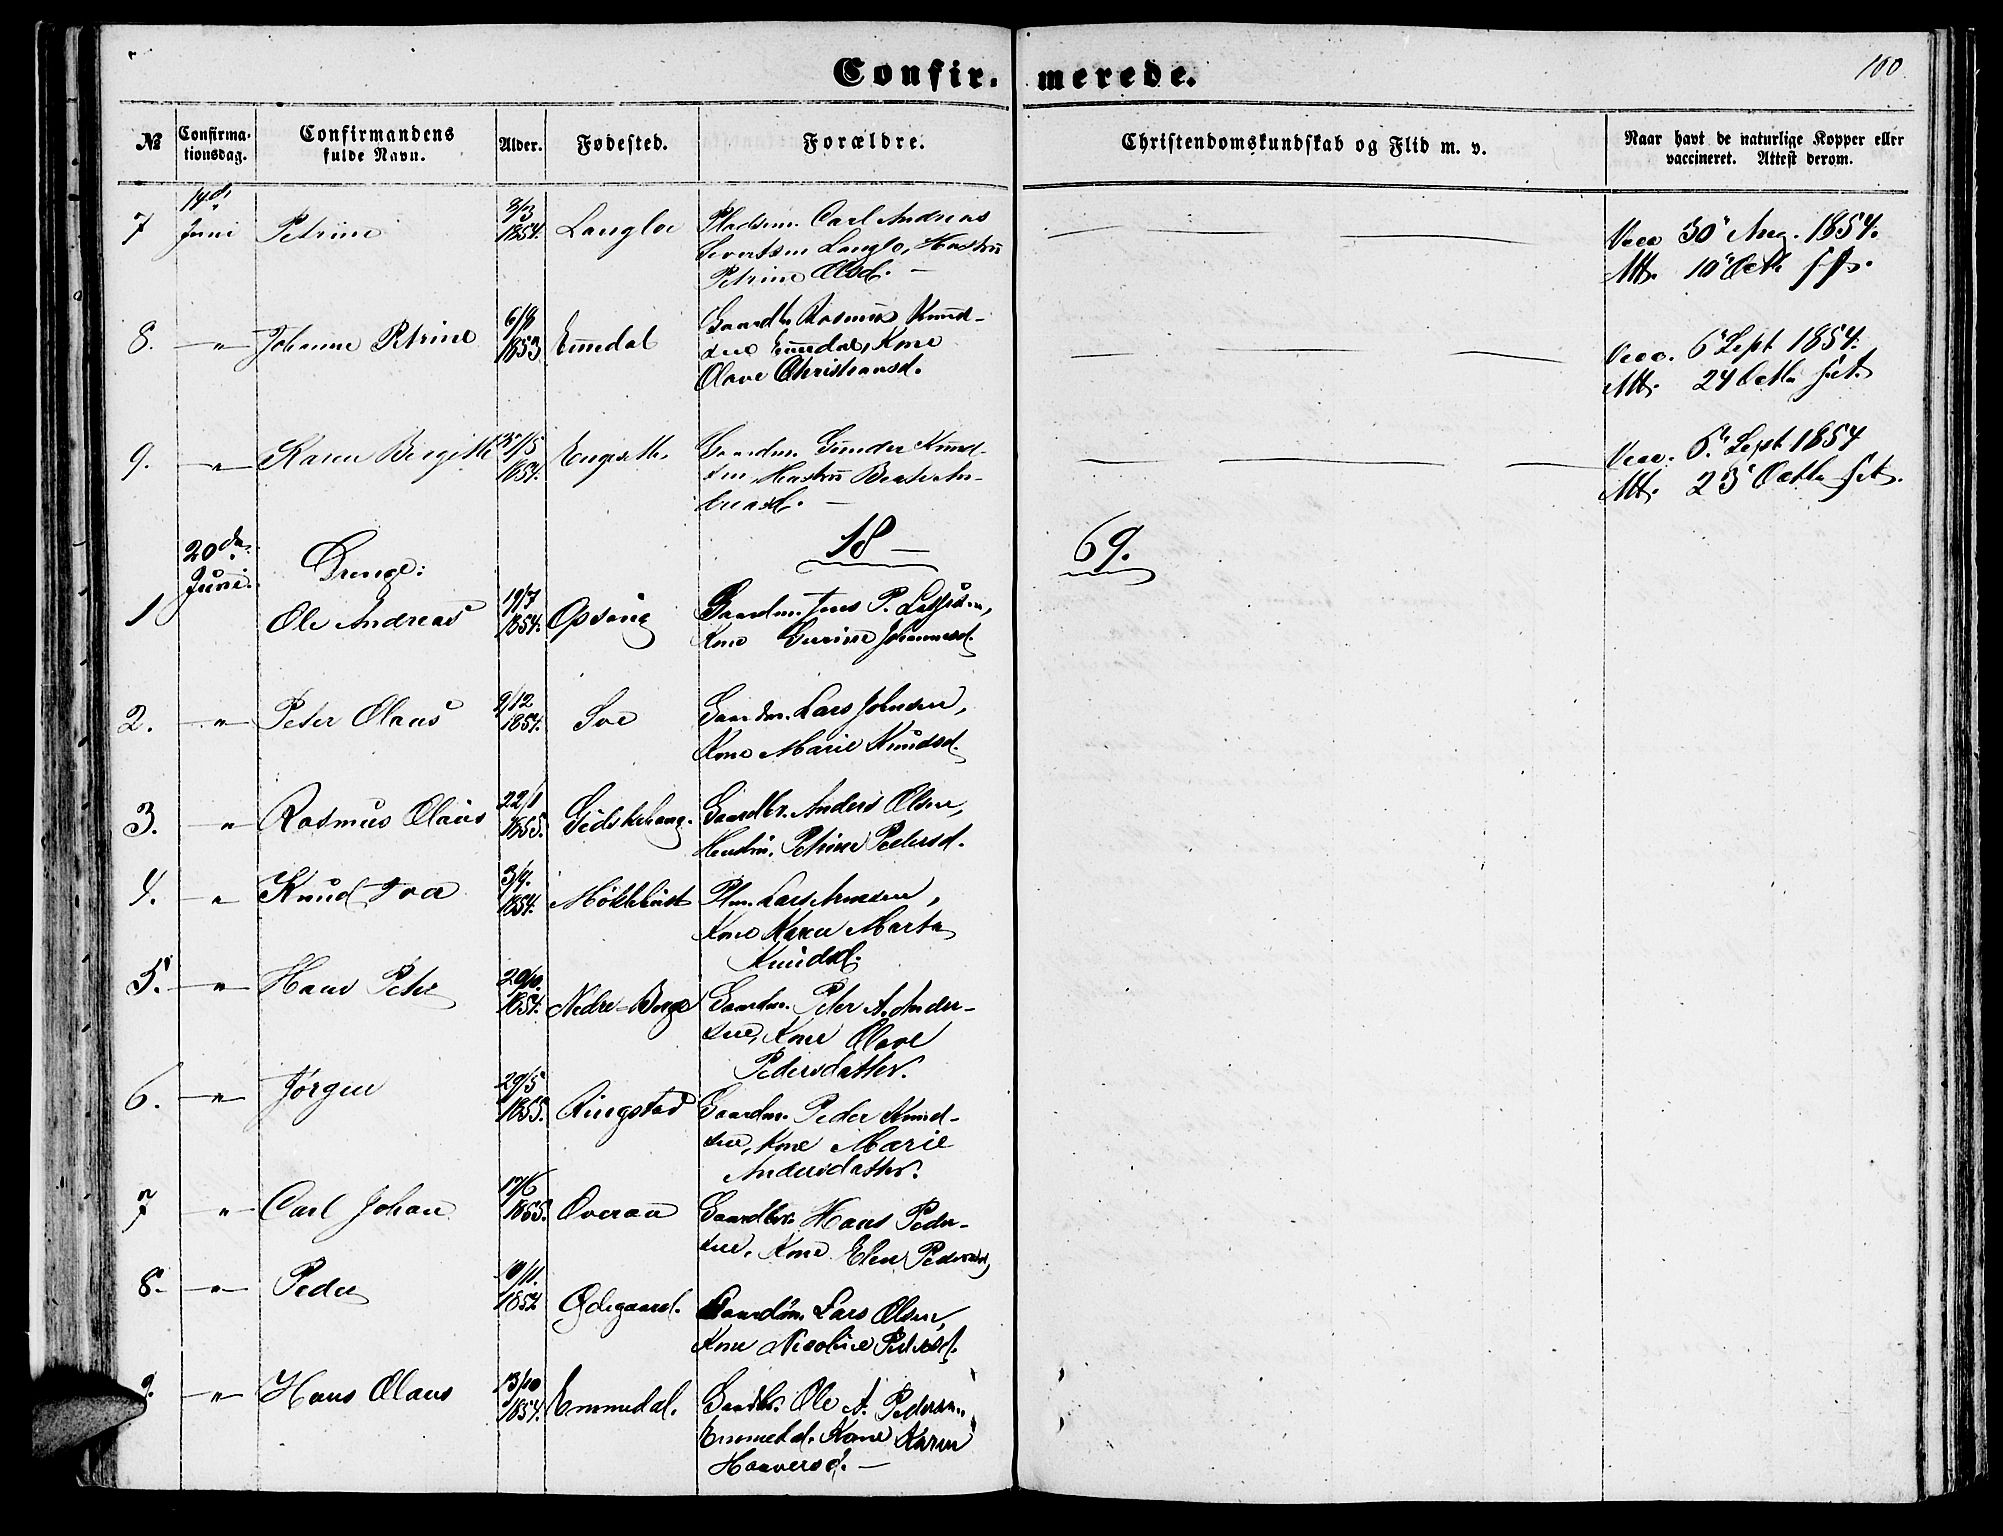 100
Confir. merede.
№ Confirma- Confirmandens Alder. Fødested. Forældre. Christendomskundskab og Flid m. v. Naar havt de naturlige Kopper eller
tionsdag. fulde Navn. vaccineret. Attest derom.
7 14de Juni Petrine 1854. Langloe Pladsm. Carl Andreas
Sivertsen Langlo, Hustru
Petrine Olsd. —
Vacc 30 Aug. 1854.
Att. 10 Octb
8. — " — Johanne Petrine 6/8 1853 Emedal Gaardbr. Rasmus Knud-
sen Emedal, Kone
Olave Christiansd.
Vacc. 6 Sept 1854.
Att. 24 Octbr
9. — " — Karen Birgitte 1854. Engeseth. Gaardm. Gunder Knud-
sen, Hustru Beate An-
dreasd. —
Vacc. 6 Sept 1854
Att. 23 Octbr
18 —
69.
20de Juni. Drenge:
1 Ole Andreas 19/7 1854. Opsang Gaardm. Jens P.
Kone Johannesd.
2. — " — Peter Olaus 9/12 1854. Soe Gaardm. Lars Johnsen,
Kone Marie Knudsd.
3. " — Rasmus Olaus 22/1 1855. Gaardbr. Anders Olsen,
Hustru. Petrine Pedersd.
4. — " — Knud Iva 3/9. 1854. Møklebust Plm. Lars
Kone Karen Marta
Knudsd.
5. — " — Hans Peter 29/10. 1854. Nedre-Berge Gaardm. Peter A. Ander-
sen, Kone Olave
Pedersdatter.
6. — " — Jørgen 29/5 1855. Ringstad Gaardm. Peder Knud-
sen, Kone Marie
Andersdatter.
7 " — Carl Johan 17/6 1855. Overaa Gaardbr. Hans Peder-
sen, Kone Elen Pedersd.
8. — " — Peder 10/11. Ødegaard. Gaardm. Lars Olsen,
Kone Nicoline Pedersd.
9. — " — Hans Olaus 13/10 1854. Emmedal. Gaardbr. Ole A. Pedersen,
Emmedal. Kone Karen
Haaversd. —